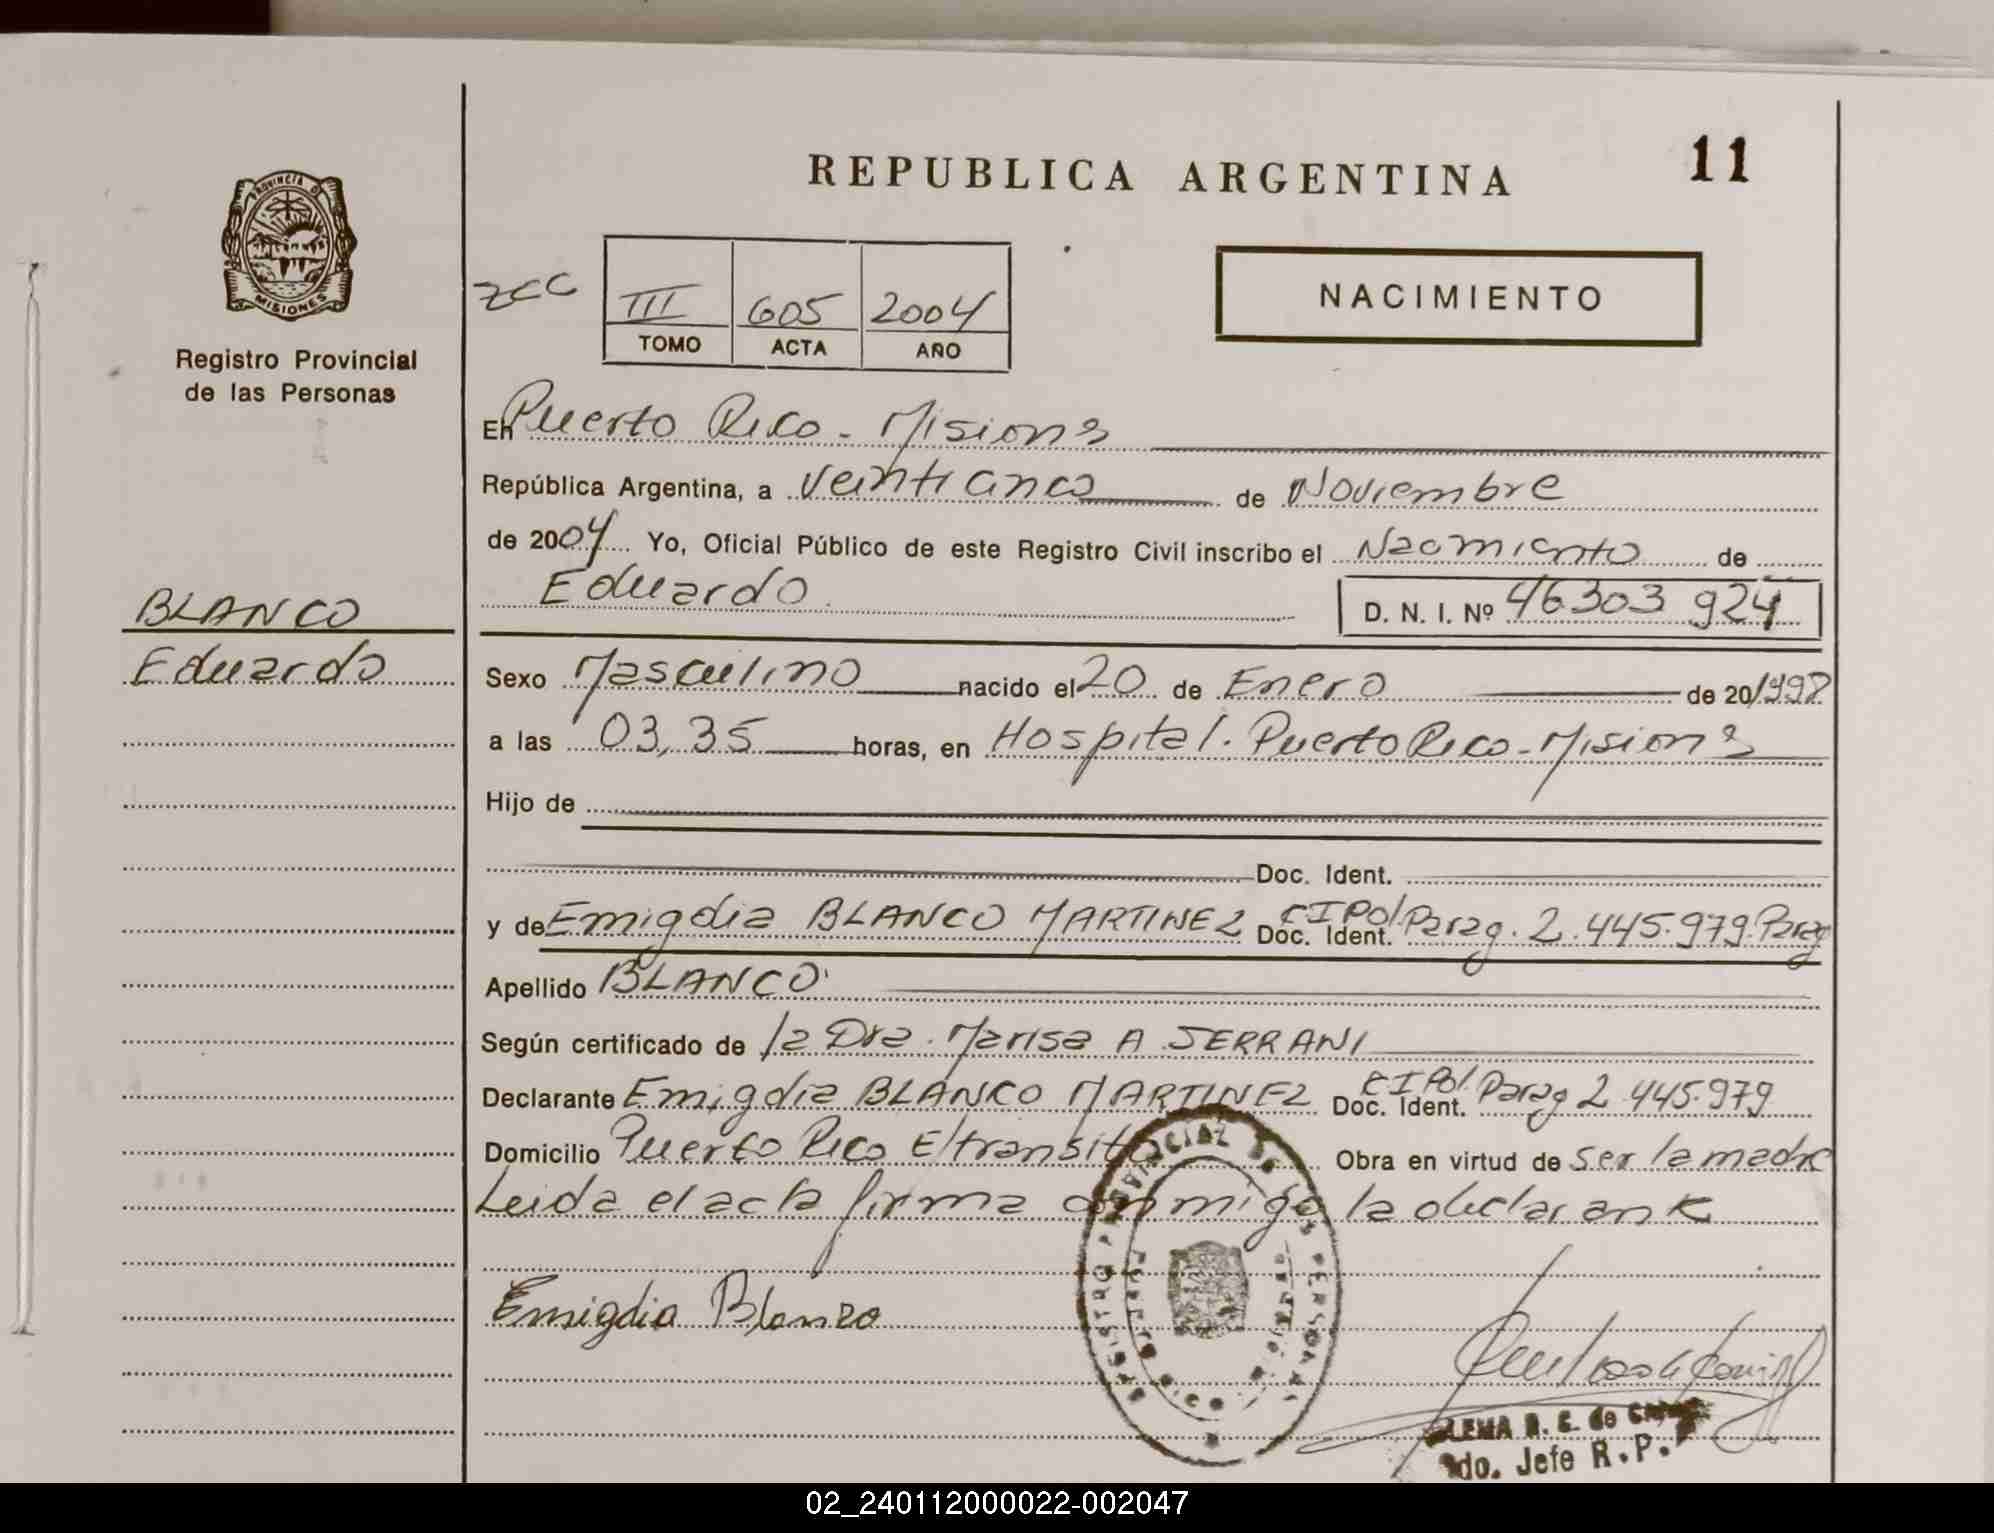 REPUBLICA ARGENTINA
11
PROVINCIA D
MISIONES
Registro Provincial
de las Personas
III 605 2004
TOMO ACTA AÑO
NACIMIENTO
En Puerto Rico - Misiones
República Argentina, a Veinticinco de Noviembre
de 2004 Yo, Oficial Público de este Registro Civil inscribo el Nacimiento de
Eduardo
D. N. I. Nº 46303 924
BLANCO
Eduardo
Sexo Masculino nacido el 20 de Enero de 20/1998
a las 03,35 horas, en Hospital. Puerto Rico - Misiones
Hijo de
Doc. Ident.
y de Emigdia BLANCO MARTINEZ Doc. Ident. CIPol Parag. 2.445.979 Parag
Apellido BLANCO
Según certificado de la Dra. Marisa A SERRANI
Declarante Emigdia BLANCO MARTINEZ Doc. Ident. CIPol. Parag 2.445.979
Domicilio Puerto Rico E/transito Obra en virtud de ser la madre
Leida el acta firma conmigo la declarante
Emigdia Blanco
REGISTRO PROVINCIAL DE LAS PERSONAS
PUERTO RICO
do. Jefe R.P.
02_240112000022-002047